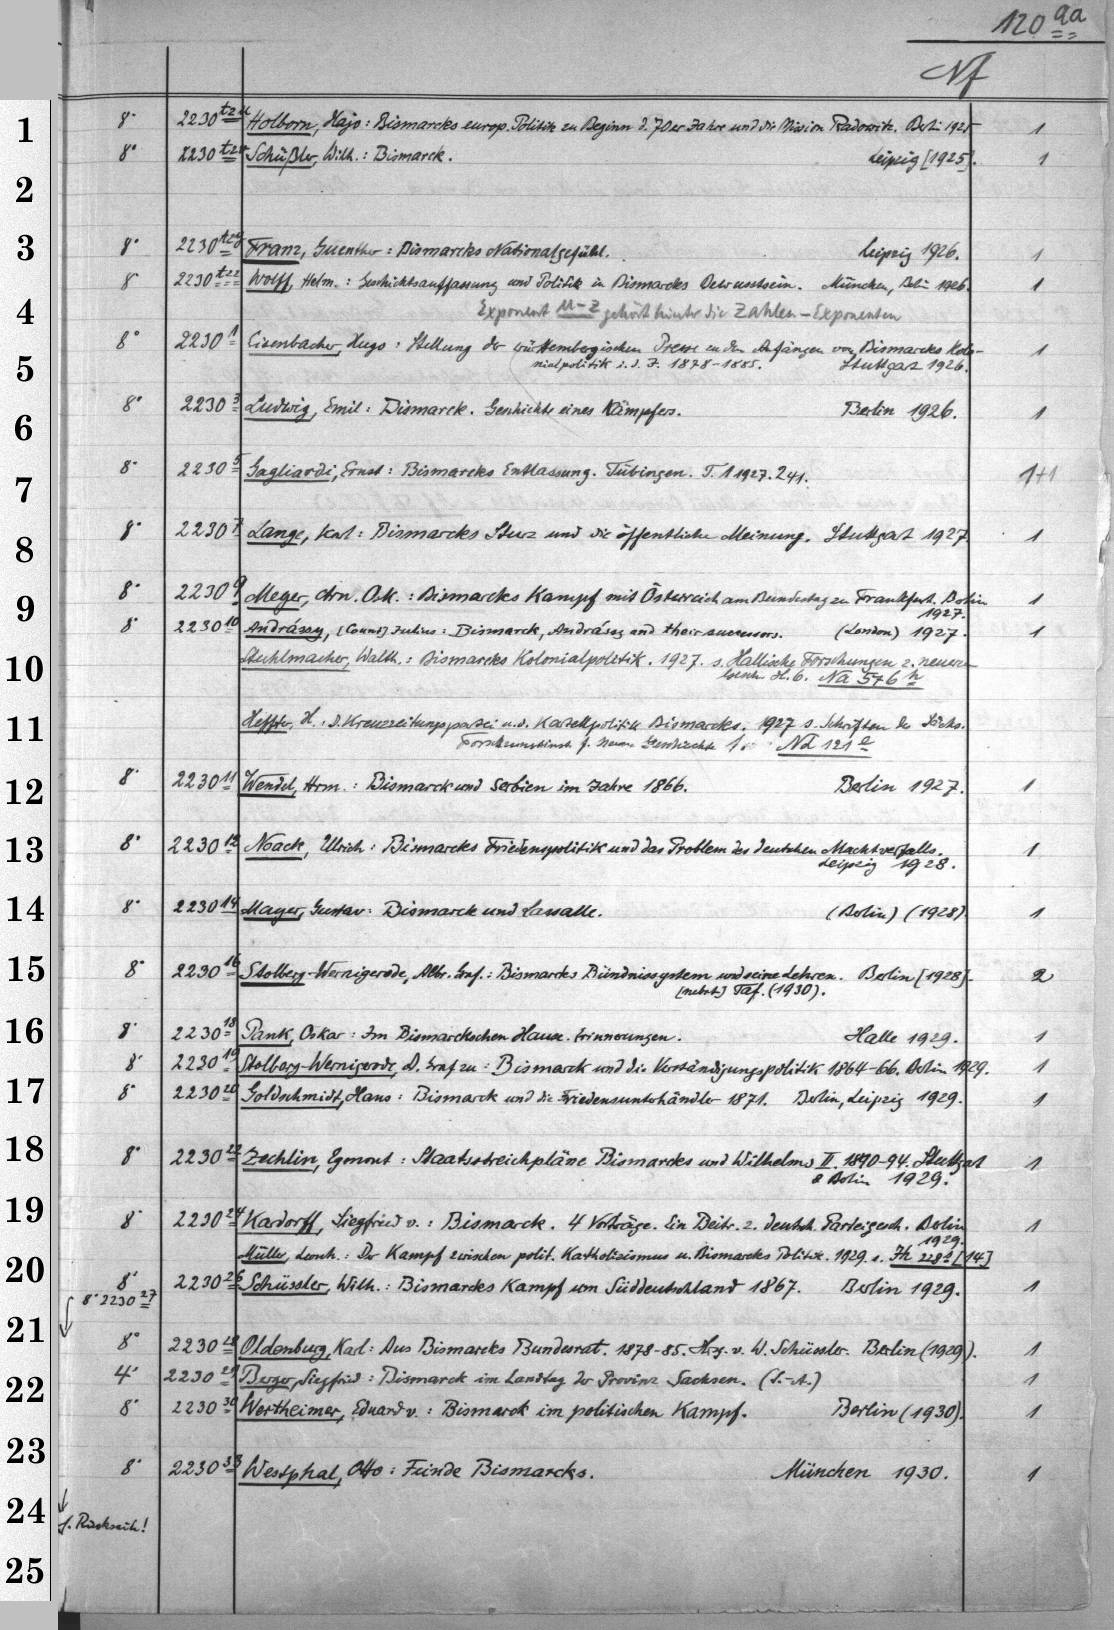 120 aa
Nf
1 8° 2230 t2u Holborn, Hajo: Bismarcks europ. Politik zu Beginn d. 70er Jahre und die Mission Radowitz. Berlin 1925 1
8° 2230 t2v Schüßler, Wilh.: Bismarck. Leipzig [1925]. 1
2
3 8° 2230 Franz, Guenther: Bismarcks Nationalgefühl. Leipzig 1926. 1
8° 2230 t2z Wolff, Helm.: Geschichtsauffassung und Politik in Bismarcks Bewusstsein. München, Berlin 1926. 1
4 Exponent u–z gehört hinter die Zahlen-Exponenten
8° 2230 1 Eisenbacher, Hugo: Stellung der württembergischen Presse zu den Anfängen von Bismarcks Kolo-
5 nialpolitik i. d. J. 1878–1885. Stuttgart 1926. 1
6 8° 2230 3 Ludwig, Emil: Bismarck. Geschichte eines Kämpfers. Berlin 1926. 1
7 8° 2230 5 Gagliardi, Ernst: Bismarcks Entlassung. Tübingen. T. 1 1927. 2 41. 1+1
8 8° 2230 7 Lange, Karl: Bismarcks Sturz und die öffentliche Meinung. Stuttgart 1927 1
9 8° 2230 9 Meyer, Arn. Osk.: Bismarcks Kampf mit Österreich am Bundestag zu Frankfurt. Berlin 1
1927.
8° 2230 10 Andrássy, [Count] Julius: Bismarck, Andrássy and their successors. (London) 1927. 1
10 Stuhlmacher, Walth.: Bismarcks Kolonialpolitik. 1927. s. Hallische Forschungen z. neueren
Gesch. H. 6. Na 546 h
11 Heffter, H.: D. Kreuzzeitungspartei u. d. Kartellpolitik Bismarcks. 1927 s. Schriften der Sächs.
Forschungsinst. f. Neuere Geschichte 1. Nd 121 e
12 8° 2230 11 Wendel, Hrm.: Bismarck und Serbien im Jahre 1866. Berlin 1927. 1
13 8° 2230 12 Noack, Ulrich: Bismarcks Friedenspolitik und das Problem des deutschen Machtverfalls. 1
Leipzig 1928.
14 8° 2230 14 Mayer, Gustav: Bismarck und Lassalle. (Berlin) (1928) 1
15 8° 2230 16 Stolberg-Wernigerode, Albr. Graf.: Bismarcks Bündnissystem und seine Lehren. Berlin [1928]. 2
[nebst] Taf. (1930).
16 8° 2230 18 Pank, Oskar: Im Bismarckschen Hause. Erinnerungen. Halle 1929. 1
8° 2230 19 Stolberg-Wernigerode, O. Graf zu: Bismarck und die Verständigungspolitik 1864–66. Berlin 1929. 1
17 8° 2230 20 Goldschmidt, Hans: Bismarck und die Friedensunterhändler 1871. Berlin, Leipzig 1929. 1
18 8° 2230 22 Zechlin, Egmont: Staatsstreichpläne Bismarcks und Wilhelms II. 1890–94. Stuttgart 1
& Berlin 1929.
19 8° 2230 24 Kardorff, Siegfried v.: Bismarck. 4 Vorträge. Ein Beitr. z. deutsch. Parteigesch. Berlin 1
1929.
Müller, Leonh.: Der Kampf zwischen polit. Katholizismus u. Bismarcks Politik. 1929. s. Jh 228 [14]
20 8° 2230 26 Schüssler, Wilh.: Bismarcks Kampf um Süddeutschland 1867. Berlin 1929. 1
8° 2230 27
21 8° 2230 28 Oldenburg, Karl: Aus Bismarcks Bundesrat. 1878–85. Hrg. v. W. Schüssler. Berlin (1929). 1
22 4° 2230 29 Berger, Siegfried: Bismarck im Landtag der Provinz Sachsen. (S.-A.) 1
8° 2230 30 Wertheimer, Eduard v.: Bismarck im politischen Kampf. Berlin (1930). 1
23 8° 2230 33 Westphal, Otto: Feinde Bismarcks. München 1930. 1
24 s. Rückseite!
25